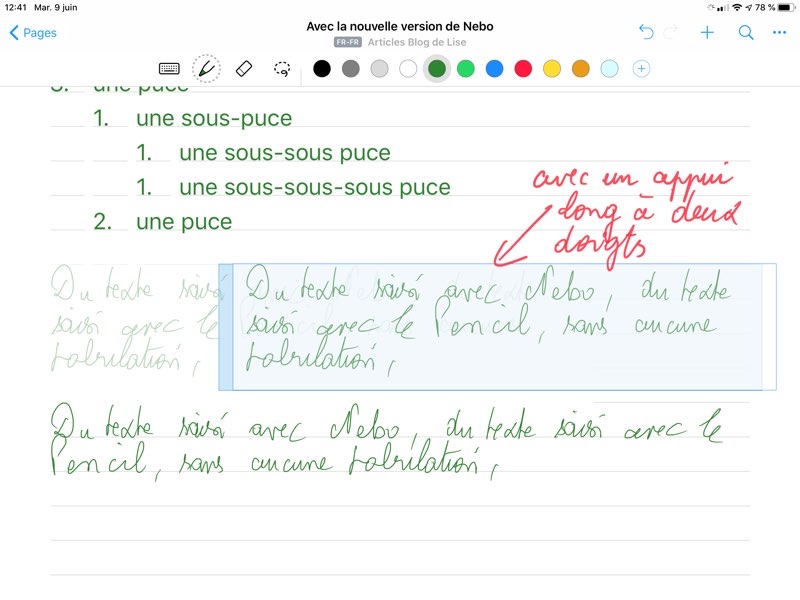 12:41 Mar. 9 juin
78 %
Pages
Avec la nouvelle version de Nebo
FR-FR Articles Blog de Lise
3. une puce
1. une sous-puce
1. une sous-sous puce
1. une sous-sous-sous puce
2. une puce
avec un appui
long à deux
doigts
Du texte saisi
saisi avec le
tabulation,
Du texte saisi avec Nebo, du texte
saisi avec le Pencil, sans aucune
tabulation,
Du texte saisi avec Nebo, du texte saisi avec le
Pencil, sans aucune tabulation,